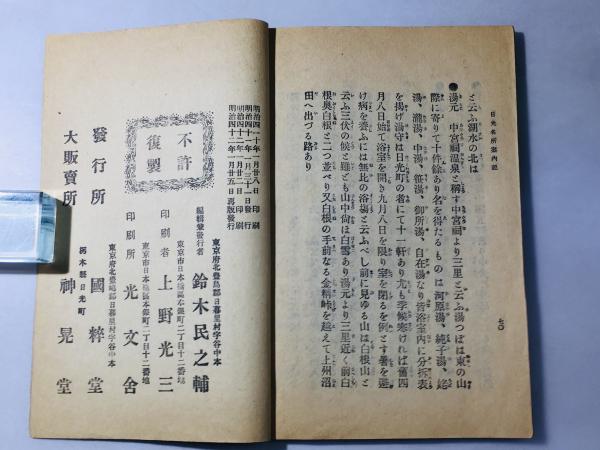 日光名所案内記
七〇
と云ふ湖水の北は
●湯元 中宮祠温泉と稱す中宮祠より三里と云ふ湯つぼは東の山
際に寄りて十件餘あり名を得たるものは河原湯、純子湯、姥
湯、瀧湯、中湯、笹湯、御所湯、自在湯なり皆浴室内に分拆表
を掲げ湯守は日光町の者にて十一軒あり尤も季候寒ければ舊四
月八日始て浴室を開き九月八日を限り室を閉るを例とす暑を避
け病を養ふには無比の浴塲と云ふべし前に見ゆる山は白根山と
云ふ三伏の候と雖ども山中尚は白雪あり湯元より三里近く前白
根奥白根と二つ並べり又白根の手前なる金精峠を越えて上州沼
田へ出づる路あり
明治四十一年一月三十一日發行
明治四十二年一月廿五日再版發行
不許
復製
東京府北豊島郡日暮里村字谷中本
編輯兼發行者 鈴木民之輔
東京市日本橋區本銀町二丁目十二番地
印刷者 上野光三
東京市日本橋區本銀町二丁目十二番地
印刷所 光文舍
東京府北豊島郡日暮里村字谷中本
發行所 國粹堂
栃木縣日光町
大販賣所 神晃堂